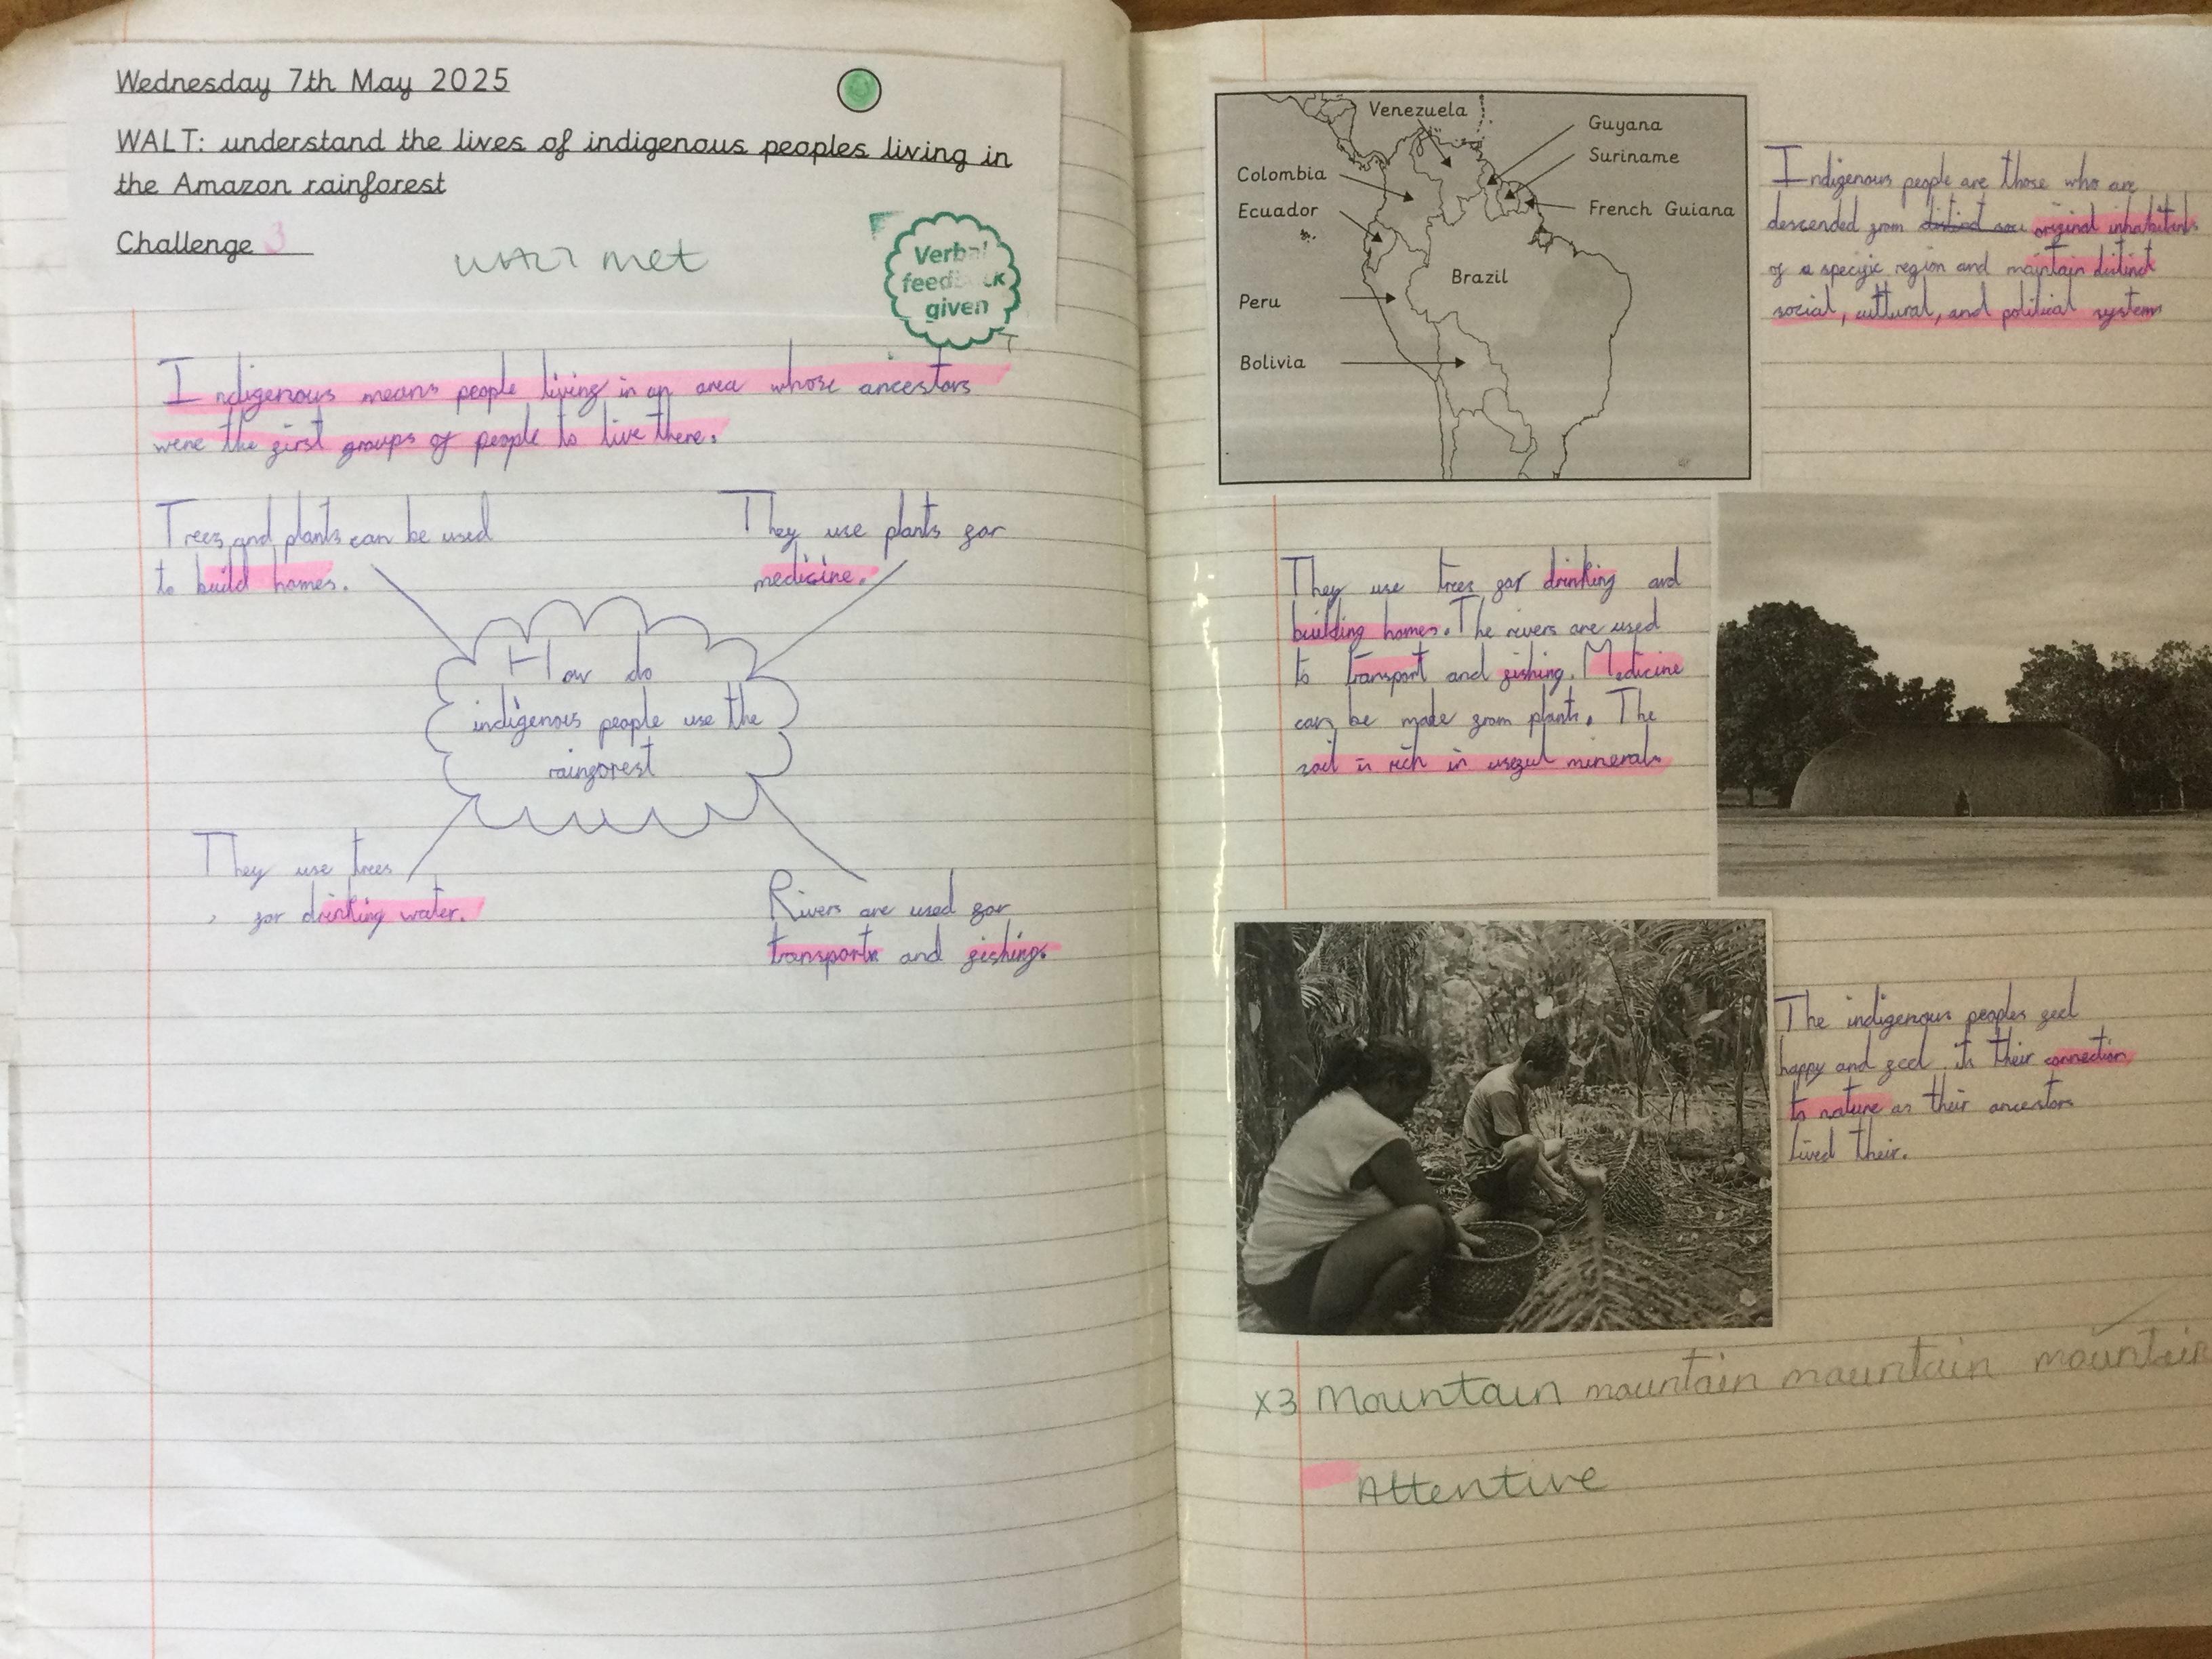 Wednesday 7th May 2025
WALT: understand the lives of indigenous peoples living in
the Amazon rainforest
Challenge 3
WALT met
Verbal
feedback
given
Indigenous means people living in an area whose ancestors
were the first groups of people to live there.
Trees and plants can be used
to build homes.
They use plants for
medicine.
How do
indigenous people use the
rainforest
They use trees
for drinking water.
Rivers are used for
transport and fishing.
Venezuela
Guyana
Suriname
Colombia
Ecuador
French Guiana
Brazil
Peru
Bolivia
Indigenous people are those who are
descended from distinct original inhabitants
of a specific region and maintain distinct
social, cultural, and political systems
They use trees for drinking and
building homes. The rivers are used
to transport and fishing. Medicine
can be made from plants. The
soil is rich in useful minerals
The indigenous peoples feel
happy and feel their connection
to nature as their ancestors
lived their.
x3 Mountain mountain mountain mountain
Attentive